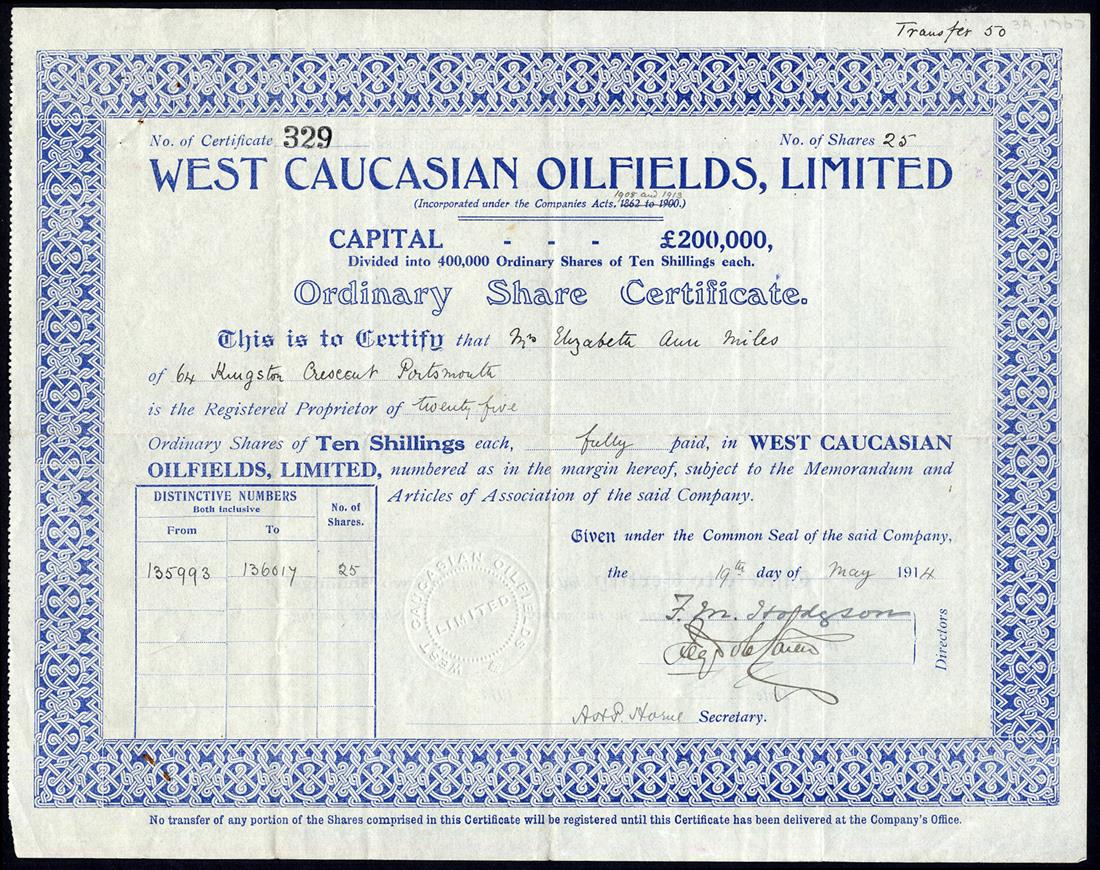 Transfer 50
No. of Certificate 329
No. of Shares 25
WEST CAUCASIAN OILFIELDS, LIMITED
1908 and 1913
(Incorporated under the Companies Acts, 1862 to 1900.)
CAPITAL - - - £200,000,
Divided into 400,000 Ordinary Shares of Ten Shillings each.
Ordinary Share Certificate.
This is to Certify that Mrs Elizabeth Ann Miles
of 64 Kingston Crescent Portsmouth
is the Registered Proprietor of twenty five
Ordinary Shares of Ten Shillings each, fully paid, in WEST CAUCASIAN
OILFIELDS, LIMITED, numbered as in the margin hereof, subject to the Memorandum and
Articles of Association of the said Company.
DISTINCTIVE NUMBERS
Both inclusive
No. of
Shares.
From To
135993 136017 25
WEST CAUCASIAN OILFIELDS
LIMITED
Given under the Common Seal of the said Company,
the 19th day of May 1914
F. M. Hodgson
Directors
Secretary.
No transfer of any portion of the Shares comprised in this Certificate will be registered until this Certificate has been delivered at the Company's Office.